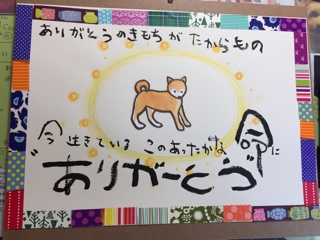 ありがとうのきもちが たからもの
今 生きている このあったかな 命に
"ありがーとう"